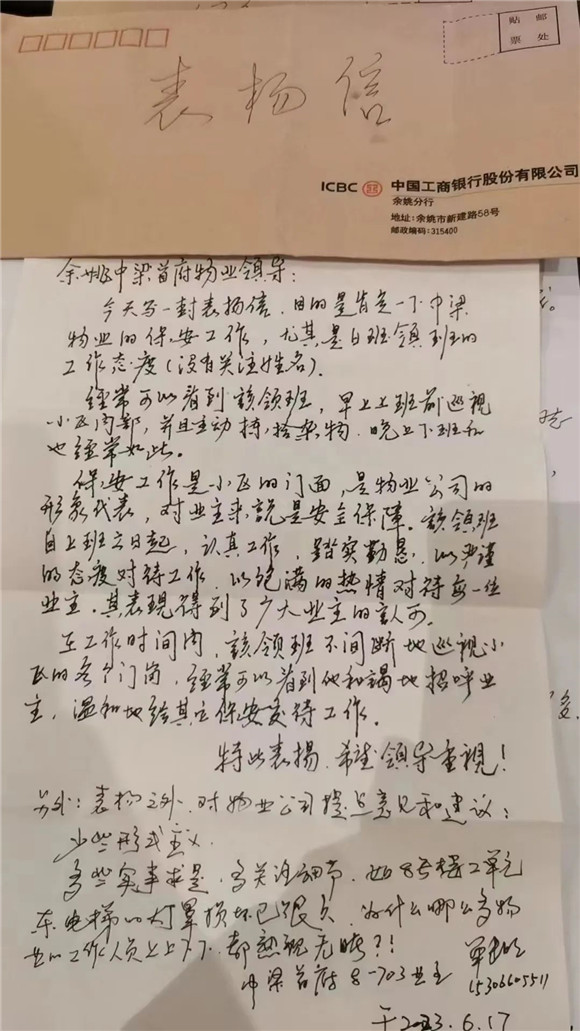 贴 邮
票 处
表扬信
ICBC 中国工商银行股份有限公司
余姚分行
地址：余姚市新建路58号
邮政编码：315400
余姚中梁首府物业领导：
今天写一封表扬信，目的是肯定一下中梁
物业的保安工作，尤其是白班领班的
工作态度（没有关注姓名）.
经常可以看到该领班，早上上班前巡视
小区内部，并且主动捡拾杂物，晚上下班后
也经常如此。
保安工作是小区的门面，是物业公司的
形象代表，对业主来说是安全保障。该领班
自上班之日起，认真工作，踏实勤恳，以严谨
的态度对待工作，以饱满的热情对待每一位
业主，其表现得到了广大业主的认可。
在工作时间内，该领班不间断地巡视小
区的各个门岗，经常可以看到他和谒地招呼业
主，温和地给其它保安交待工作.
特此表揚，希望領导重視！
另外：表扬之外，对物业公司提点意见和建议：
少些形式主义，
多些实事求是，多关注细节，如8号楼2单元
东电梯的灯罩损坏已很久，为什么那么多物
业的工作人员上上下下，都熟视无睹？！
中梁首府8-703业主
15306605511
于2023.6.17